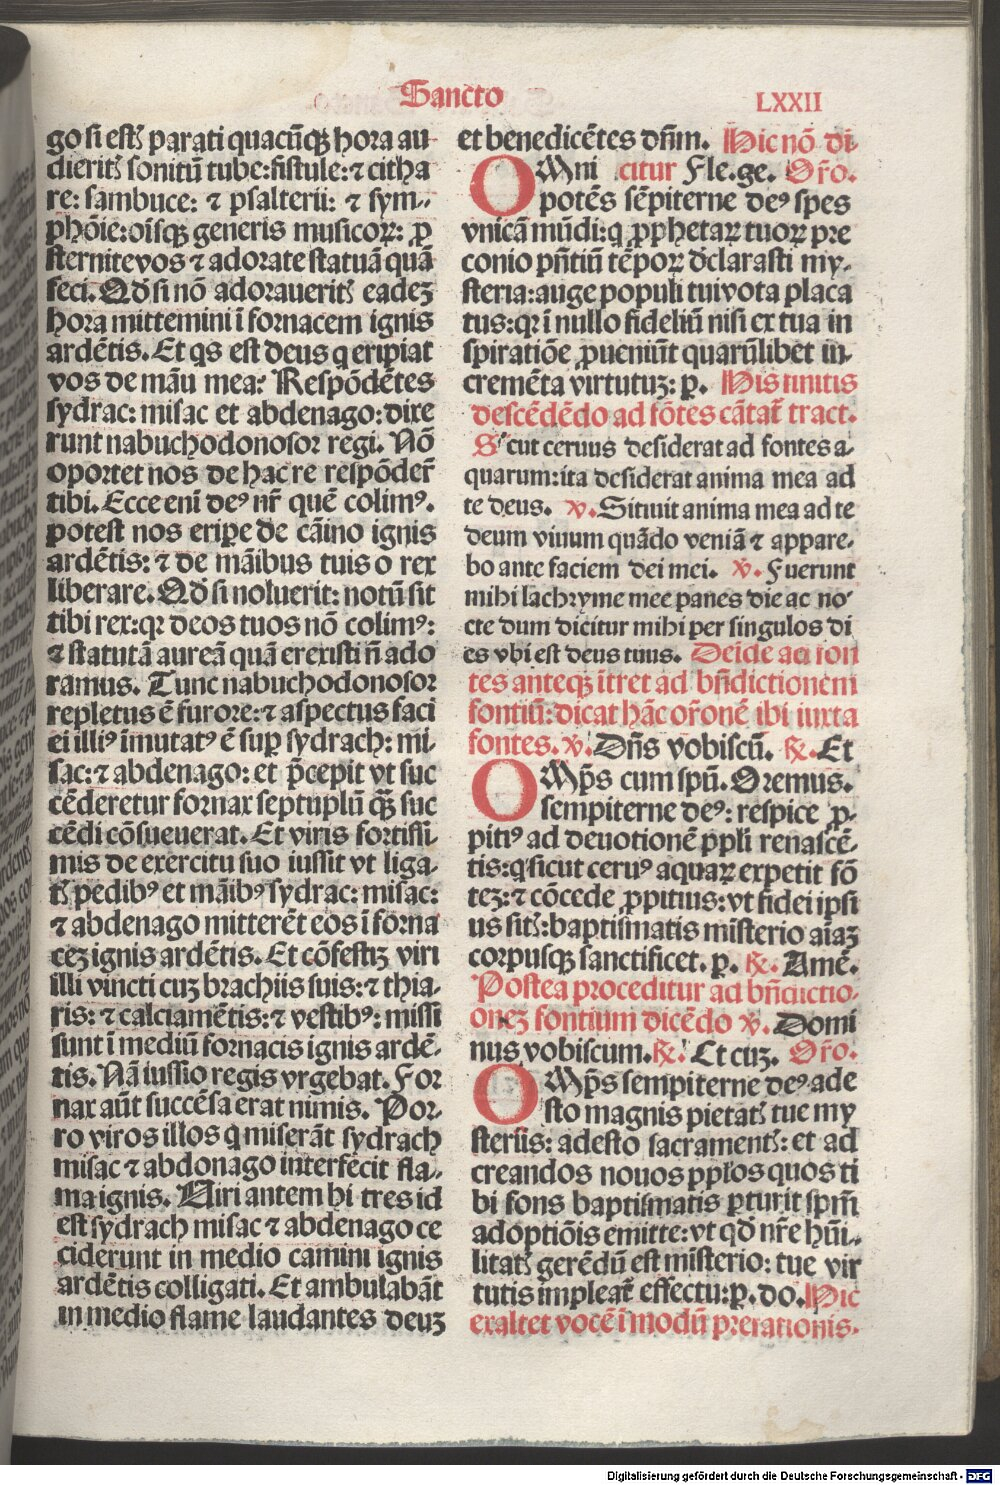 Sancto
LXXII
go si estꝭ parati quacūqꝫ hora au
dieritꝭ sonitū tube: fistule: ⁊ citha
re: sambuce: ⁊ psalterii: ⁊ sym-
phōie: oīsqꝫ generis musicoꝝ: ꝓ
sternite vos ⁊ adorate statuā quā
feci. Qđ si nō adoraueritꝭ eadeꝫ
hora mittemini ī fornacem ignis
ardētis. Et qs est deus q eripiat
vos de māu mea? Respōdētes
sydrac: misac et abdenago: dixe
runt nabuchodonosor regi. Nō
oportet nos de hac re respōder̄
tibi. Ecce eni deꝰ nr̄ quē colimꝰ.
potest nos eripe de cāino ignis
ardētis: ⁊ de māibus tuis o rex
liberare. Qđ si noluerit: notū sit
tibi rex: qꝛ deos tuos nō colimꝰ:
⁊ statutā aureā quā erexisti n̄ ado
ramus. Tunc nabuchodonosor
repletus ē furore: ⁊ aspectus faci
ei illiꝰ īmutatꝰ ē suꝑ sydrach: mi-
sac: ⁊ abdenago: et p̄cepit vt suc
cēderetur fornax septuplū qꝫ suc
cēdi cōsueuerat. Et viris fortissi
mis de exercitu suo iussit vt liga-
tꝭ pedibꝰ et māibꝰ sydrac: misac:
⁊ abdenago mitterēt eos ī forna
ceꝫ ignis ardētis. Et cōfestiꝫ viri
illi vincti cuꝫ brachiis suis: ⁊ thia-
ris: ⁊ calciamētis: ⁊ vestibꝰ: missi
sunt ī mediū fornacis ignis ardē-
tis. Nā iussio regis vrgebat. For
nax aūt succēsa erat nimis. Por-
ro viros illos q miserāt sydrach
misac ⁊ abdonago interfecit fla-
ma ignis. Uiri antem hi tres id
est sydrach misac ⁊ abdenago ce
ciderunt in medio camini ignis
ardētis colligati. Et ambulabāt
in medio flame laudantes deuꝫ
et benedicētes dn̄m. Hic nō di-
OMni citur Fle.ge. Or̄o.
potēs sēpiterne deꝰ spes
vnicā mūdi: q ꝓphetaꝝ tuoꝝ pre
conio pn̄tiū tēpoꝝ đclarasti my-
steria: auge populi tui vota placa
tus: qꝛ ī nullo fideliū nisi ex tua in
spiratiōe ꝓueniūt quarūlibet in-
cremēta virtutuꝫ: ꝑ. His finitis
descēdēdo ad fōtes cātat̄ tract.
Sicut ceruus desiderat ad fontes a-
quarum: ita desiderat anima mea ad
te deus. ꝟ. Sitiuit anima mea ad te
deum viuum quādo veniā ⁊ appare-
bo ante faciem dei mei. ꝟ. Fuerunt
mihi lachryme mee panes die ac no-
cte dum dicitur mihi per singulos di
es vbi est deus tuus. Deide ad fon
tes anteqꝫ ītret ad bn̄dictionem
fontiū: dicat hāc or̄onē ibi iuxta
fontes. ꝟ. Dn̄s vobiscū. ℞. Et
OMp̄s cum spū. Oremus.
sempiterne deꝰ: respice ꝓ-
pitiꝰ ad deuotionē ppli renascē-
tis: q sicut ceruꝰ aquaꝝ expetit fō
teꝫ: ⁊ cōcede ꝓpitius: vt fidei ipsi
us sitꝭ: baptismatis misterio aīaꝫ
corpusqꝫ sanctificet. ꝑ. ℞. Amē.
Postea proceditur ad bn̄dictio-
oneꝫ fontium dicēdo ꝟ. Domi
nus vobiscum. ℞. Et cuꝫ. Or̄o.
OMp̄s sempiterne deꝰ ade
sto magnis pietatꝭ tue my
steriis: adesto sacramentꝭ: et ad
creandos nouos pplos quos ti
bi fons baptismatis ꝑturit spm̄
adoptiōis emitte: vt qđ nr̄e hūi-
litatꝭ gerēdū est misterio: tue vir
tutis impleat̄ effectu: ꝑ. do. Hic
exaltet vocē ī modū prefationis.
Digitalisierung gefördert durch die Deutsche Forschungsgemeinschaft - DFG